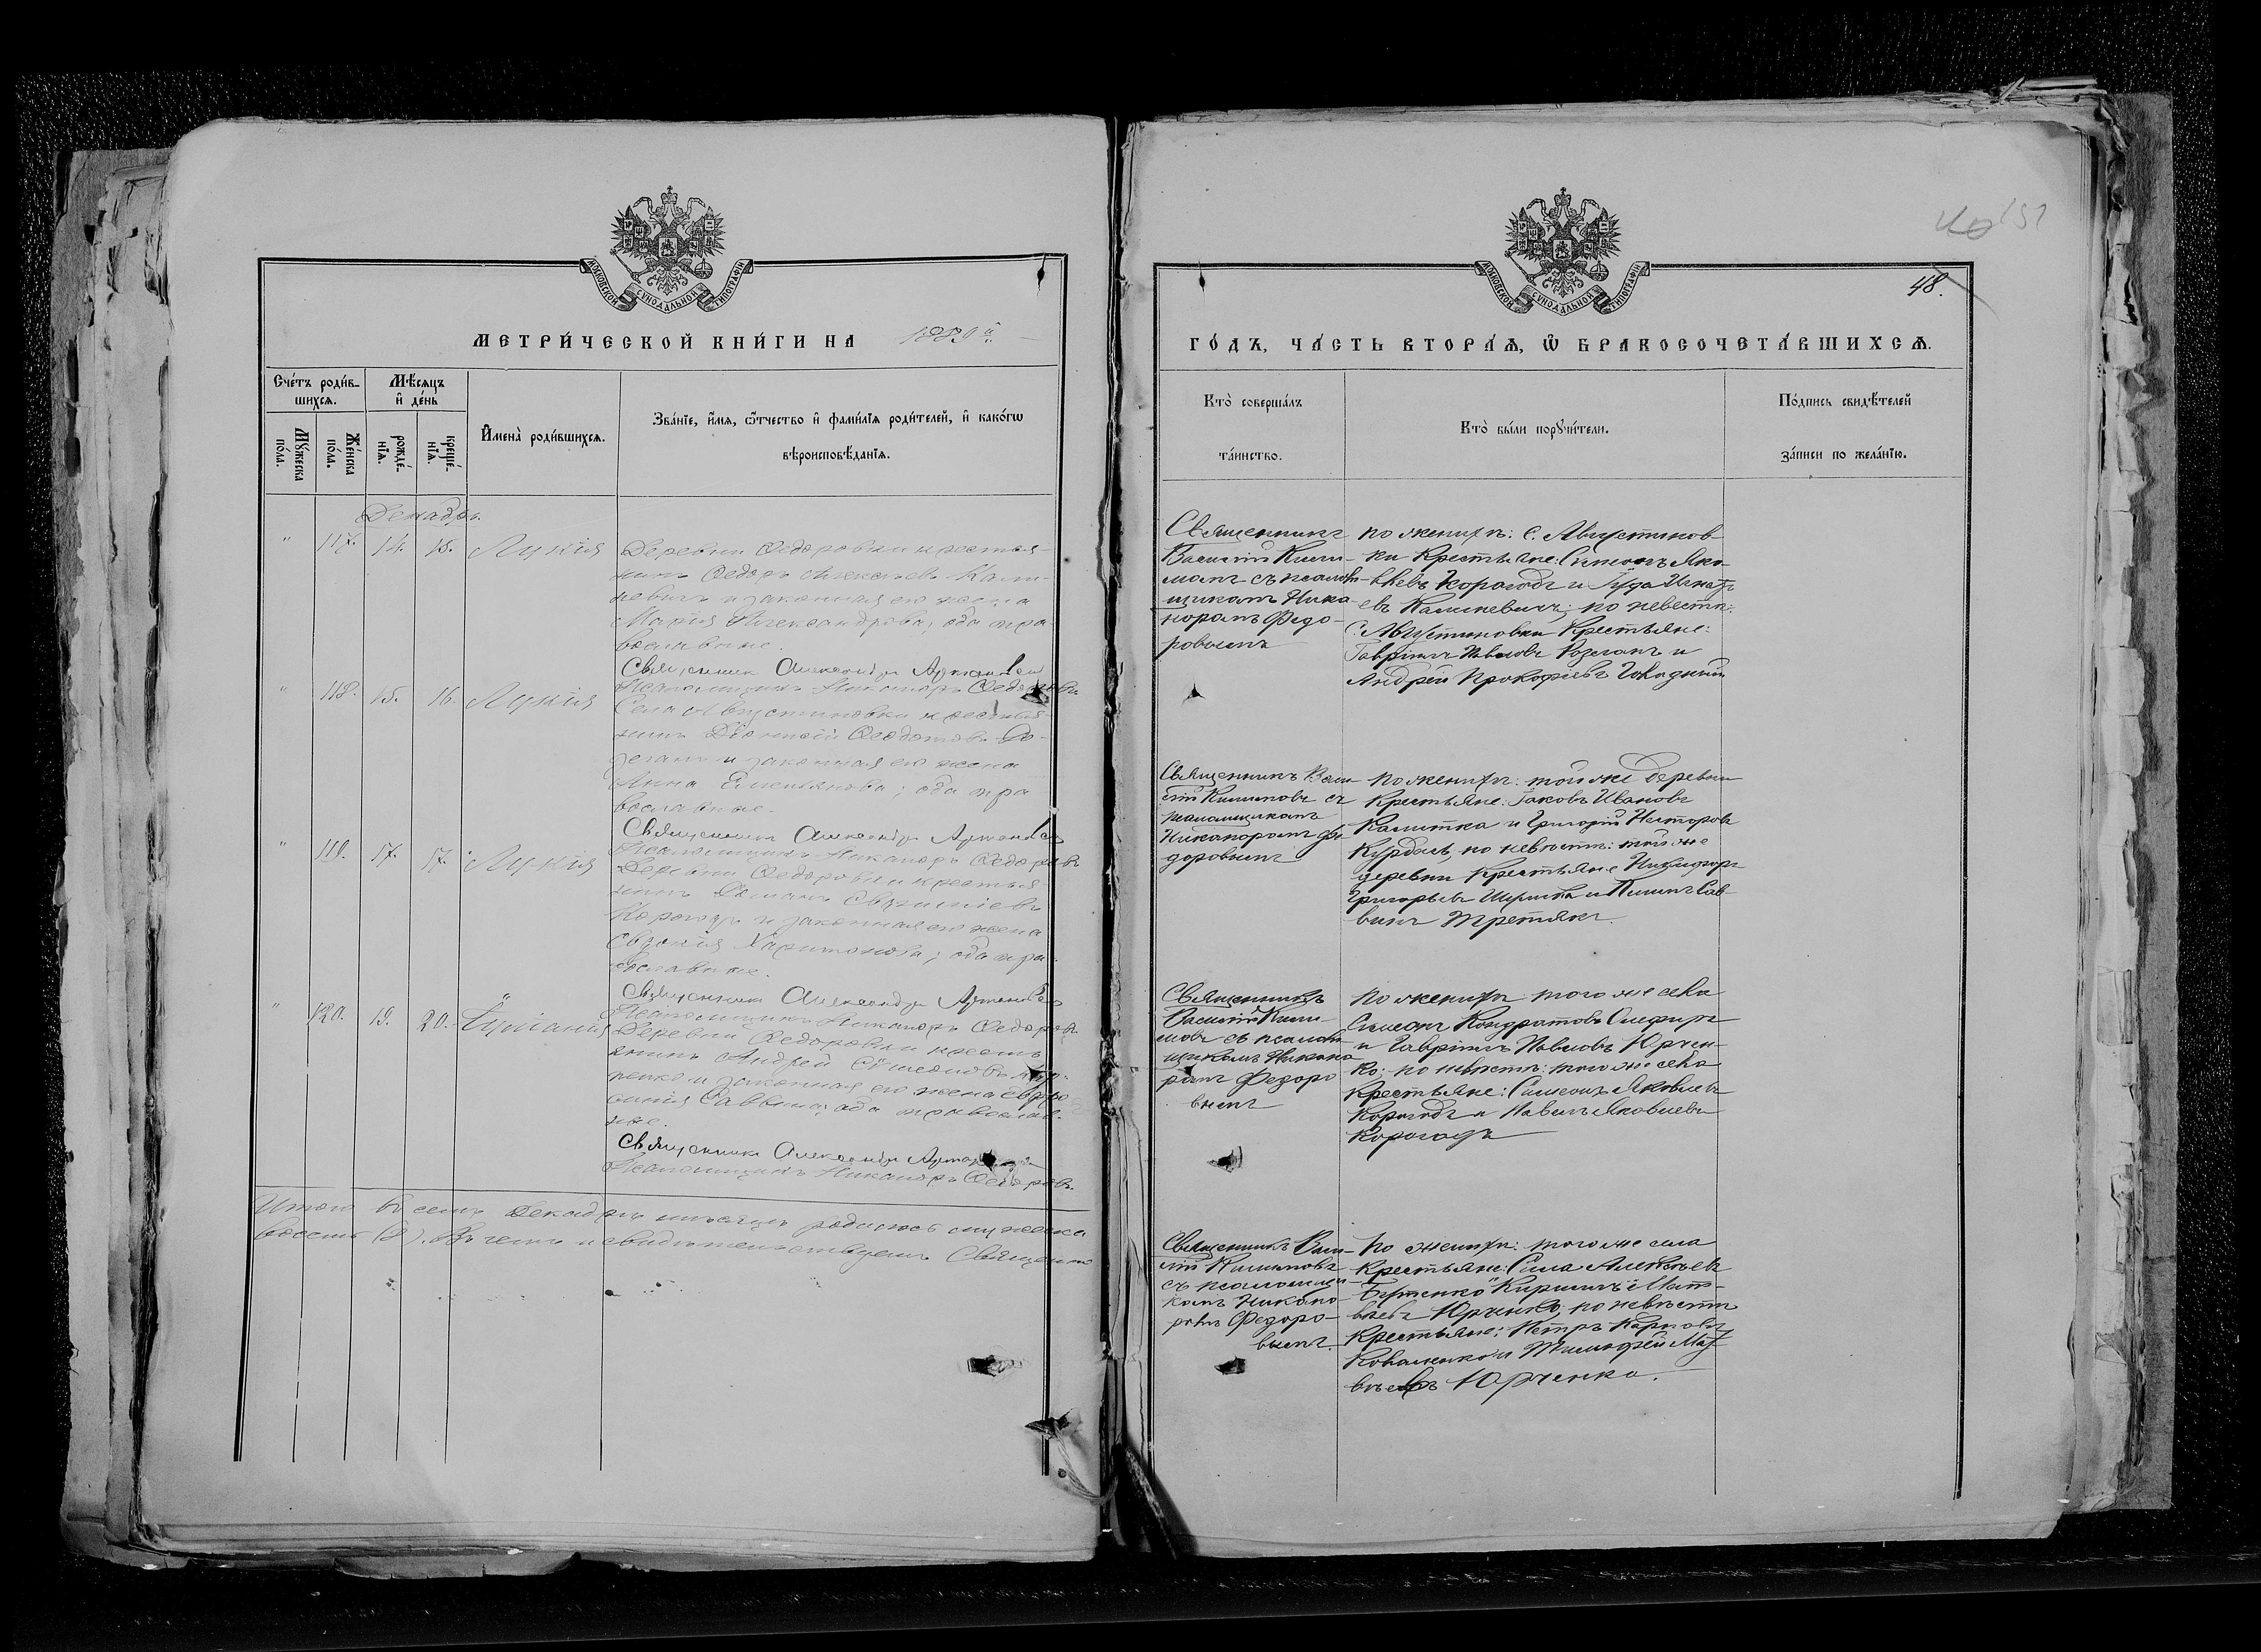 МОСКОВСКОЙ СѴНОДАЛЬНОЙ ТИПОГРАФІИ
МЕТРИ́ЧЕСКОЙ КНИ́ГИ НА 188
Сче́тъ роди́в-
шихсѧ.
Мѣ́сяцъ
и҆ де́нь
Мꙋ́жеска
по́ла.
Же́нска
по́ла.
рожде́-
нїѧ.
креще́-
нїѧ.
И҆мена̀ роди́вшихсѧ.
Зва́нїе, и҆́мѧ, ѻ҆́тчество и҆ фами́лїѧ роди́телей, и҆ како́гѡ
вѣроисповѣ́данїѧ.
Декабрь
" 117. 14. 15. Лукія
Деревни Ѳедоровки крестья-
нинъ Ѳедоръ Алексѣевъ Кали-
невичъ и законная его жена
Марія Александрова, оба пра-
вославные.
Священникъ Александръ
Псаломщикъ Никаноръ Ѳедоровъ
" 118. 15. 16. Лукія
Села Августиновки крестья-
нинъ Діонисій Ѳеодотовъ Ро-
зганъ и законная его жена
Анна Емельянова; оба пра
вославные.
Священникъ Александръ
Псаломщикъ Никаноръ Ѳедоровъ
" 119. 17. 17. Лукія
Деревни Ѳедоровки крестья
нинъ Романъ
Корогодъ и законная его жена
Евдокія Харитонова; оба пра-
вославные.
Священникъ Александръ
Псаломщикъ Никаноръ Ѳедоровъ
" 120. 19. 20. Іуліанія
Деревни Ѳедоровки кресть
янинъ Андрей Сѵмеоновъ
и законная его жена Евфро
синія Саввина; оба православ-
ные.
Священникъ Александръ
Псаломщикъ Никаноръ Ѳедоровъ.
Итого въ семъ Декабрѣ мѣсяцѣ родилось мужеска
восемь (8). Въ чемъ и свидѣтельствуемъ Священн
МОСКОВСКОЙ СѴНОДАЛЬНОЙ ТИПОГРАФІИ
151
48.
ГО́ДЪ, ЧА́СТЬ ВТОРА́Ѧ, Ѡ҆ БРАКОСОЧЕТА́ВШИХСѦ.
Кто̀ соверша́лъ
та́инство.
Кто̀ бы́ли порꙋчи́тели.
По́дпись свидѣ́телей
за́писи по жела́нїю.
Священникъ
Василій Кили-
мовъ съ псалом-
щикомъ Никано
норомъ Ѳедо-
ровымъ
по женихѣ: С. Августинов-
ки Крестьяне: Симеонъ Яко-
влевъ Корогодъ и Іуда Игнатъ
евъ Калиневичъ; по невестѣ:
С. Августиновки Крестьяне:
Гавріилъ Павловъ Розганъ и
Андрей Прокофіевъ
Священникъ Васи
лій Килимовъ съ
псаломщикомъ
Никаноромъ Ѳе-
доровымъ
по женихѣ: той же деревни
Крестьяне: Іаковъ Ивановъ
Калитка и Григорій Несторовъ
Курдасъ, по невѣстѣ: той же
деревни Крестьяне Никифоръ
Григорьевъ и Пименъ Сав-
винъ Третякъ.
Священникъ
Василій Кили-
мовъ съ псалом-
щикомъ Никано
ромъ Ѳедоро
вымъ
по женихѣ: того же села
Симеонъ Кондратовъ
и Гавріилъ Павловъ Юрчен-
ко; по невѣстѣ: того же села
Крестьяне: Симеонъ Яковлевъ
Корогодъ и Павелъ Яковлевъ
Корогодъ
Священникъ Васи-
лій Килимовъ
съ псаломщи-
комъ Никано-
ромъ Ѳедоро-
вымъ.
по женихѣ: того же села
Крестьяне: Сила Алексѣевъ
Кириллъ Мат-
вѣевъ Юрченко; по невѣстѣ
Крестьяне: Петръ Карповъ
Коваленко и Тимофей Мат-
вѣевъ Юрченко.